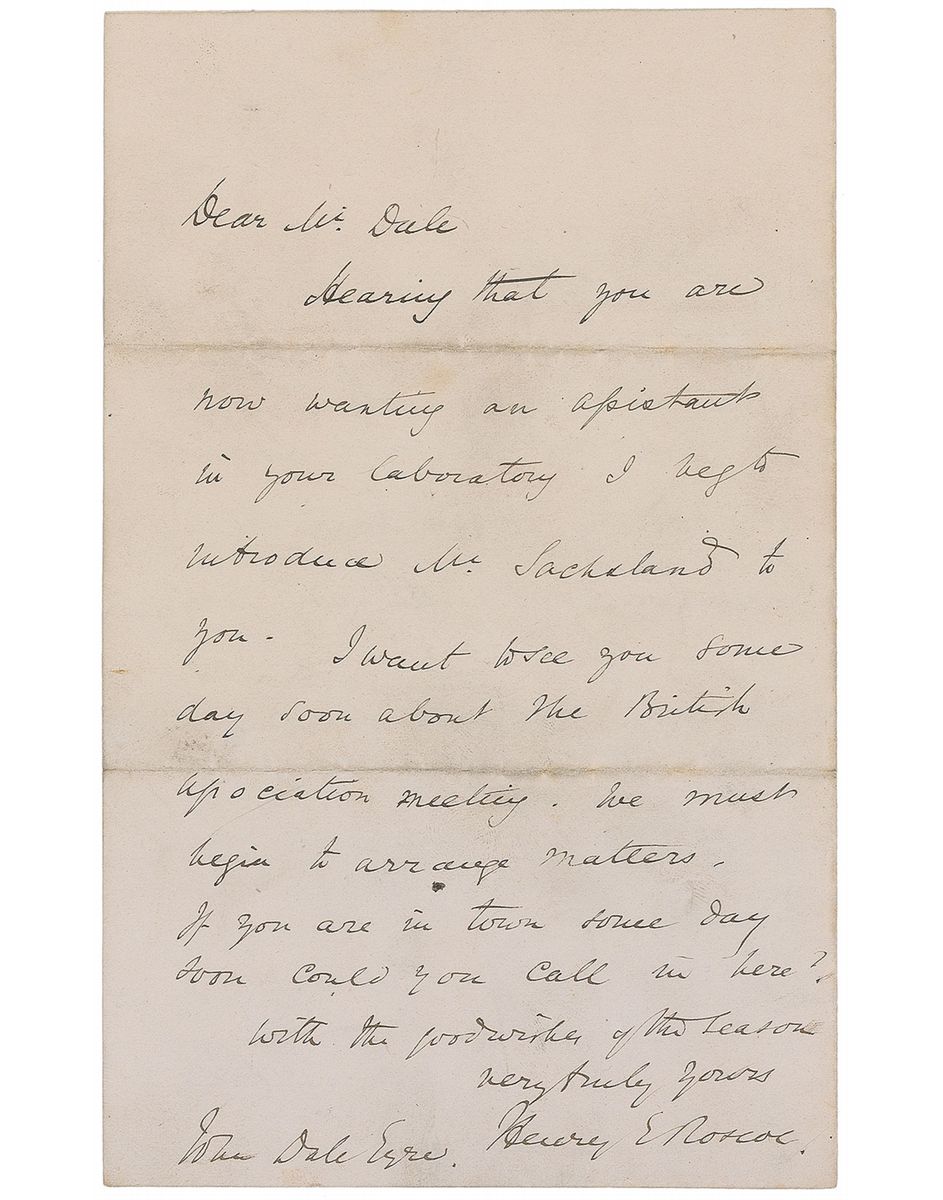 Dear Mr. Dale
Hearing that you are
now wanting an assistant
in your laboratory I beg to
introduce Mr Sachsland to
you. I want to see you some
day soon about the British
Association meeting. We must
begin to arrange matters.
If you are in town some day
soon could you call in here?
With the good wishes of the season
very truly yours
Henry E Roscoe.
John Dale Eqre.